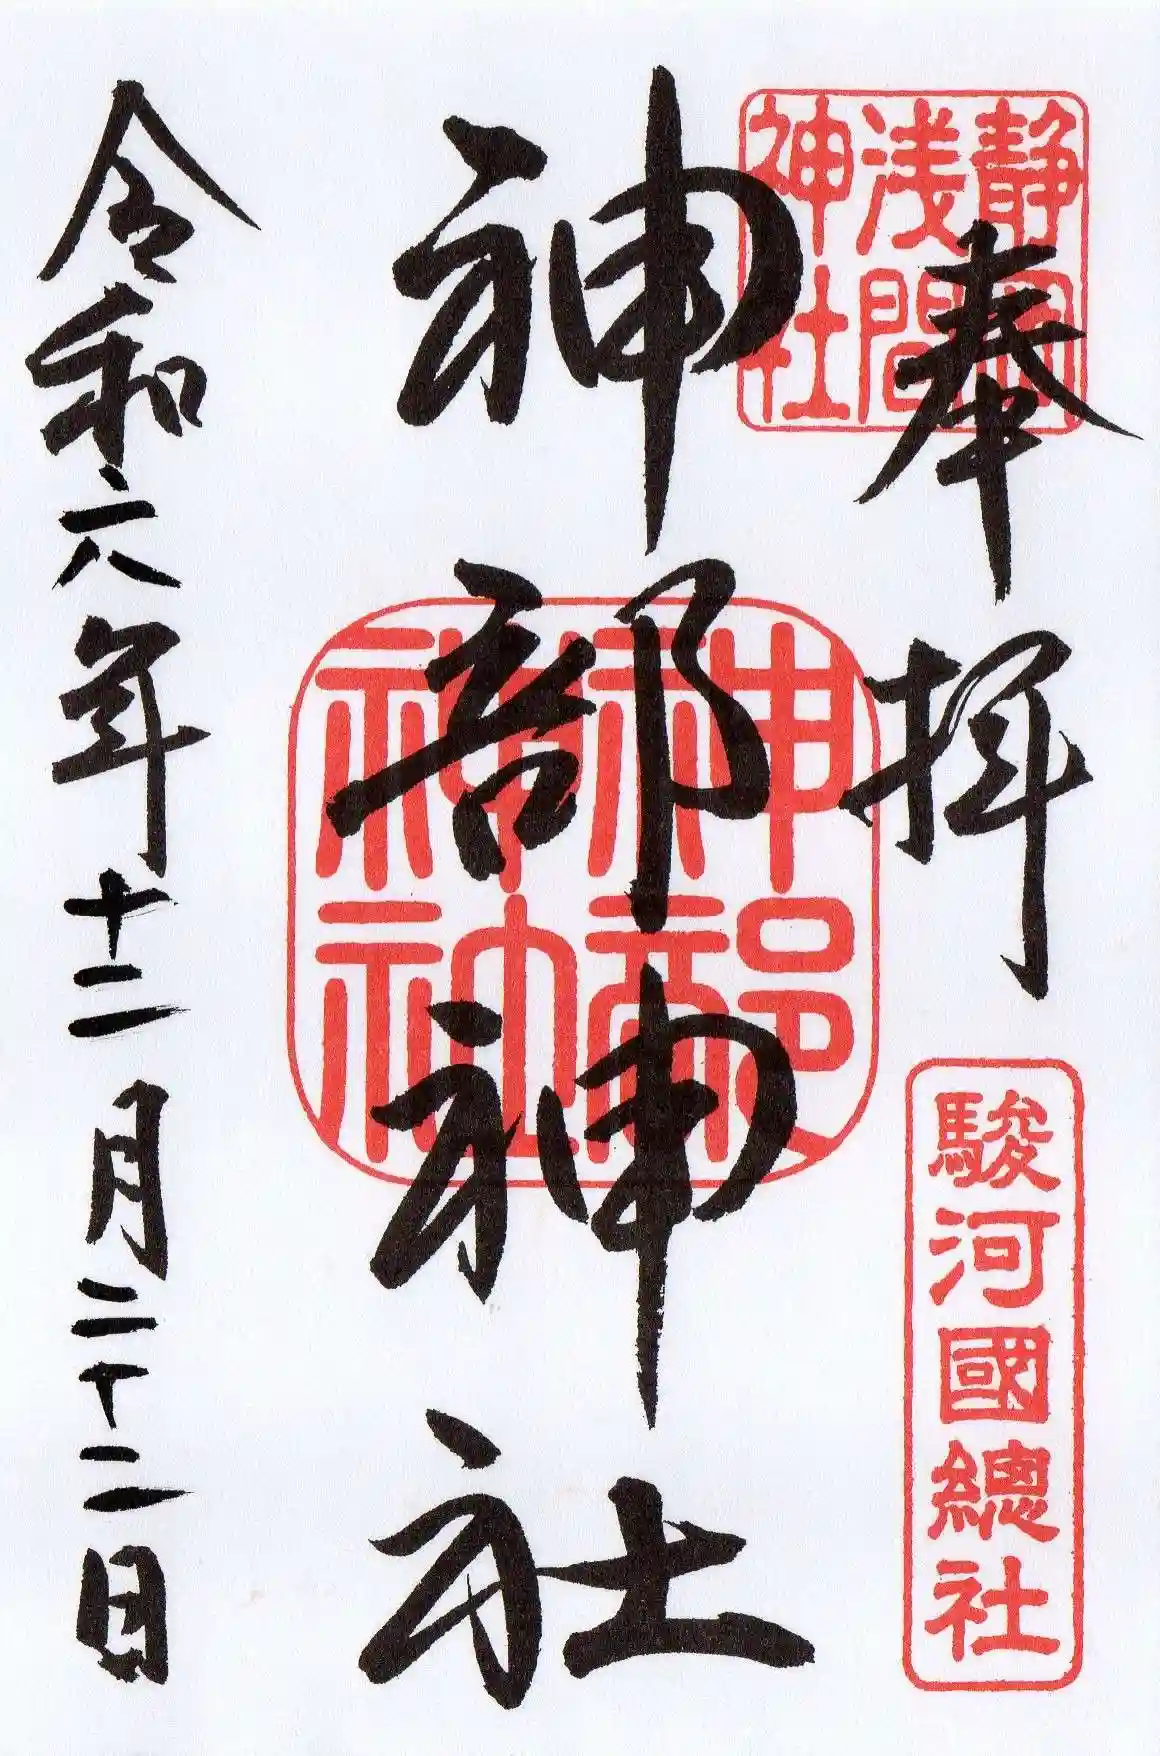 奉拝
静岡
浅間
神社
駿河國總社
神部神社
神部
神社
令和六年十二月二十二日